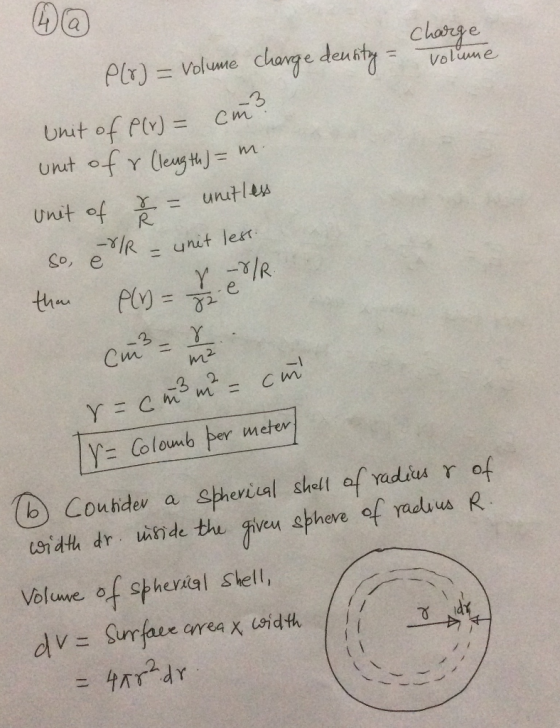 4 a
ρ(r) = Volume charge density = Charge / Volume
Unit of ρ(r) = Cm⁻³.
Unit of r (length) = m.
Unit of r/R = unitless
So, e^(-r/R) = unit less.
then ρ(r) = γ/r² · e^(-r/R)
Cm⁻³ = γ/m² .
γ = C m⁻³ m² = C m⁻¹
γ = Coloumb per meter
b Consider a spherical shell of radius r of
width dr. inside the given sphere of radius R.
Volume of spherical shell,
dV = Surface area × width
= 4πr².dr
r dr